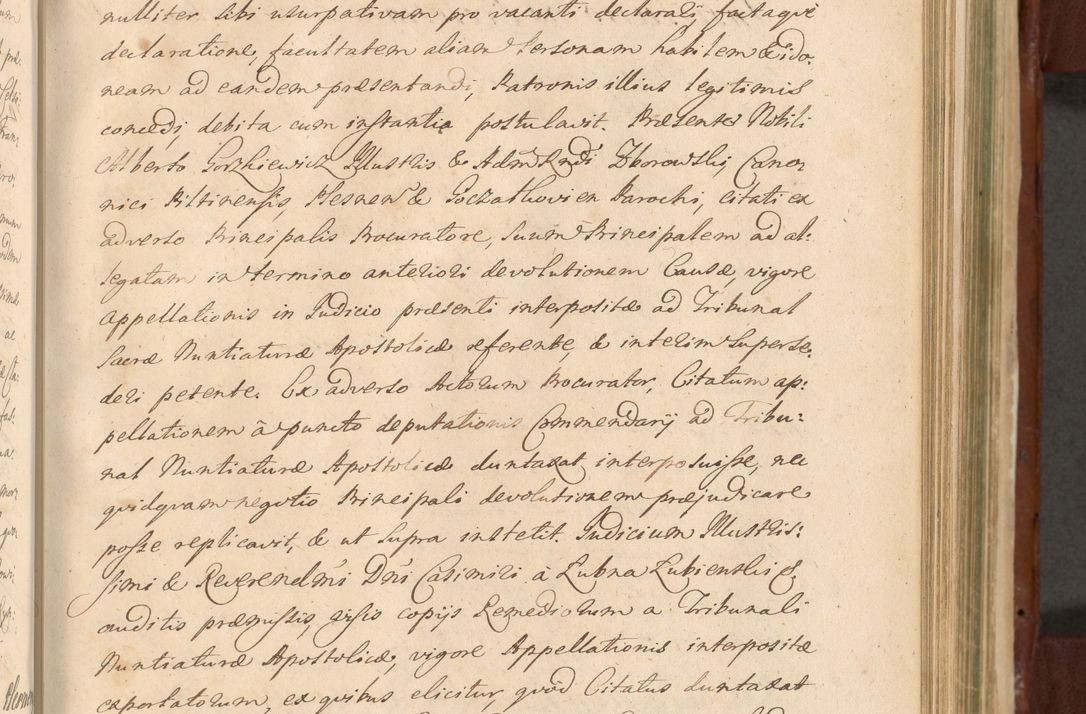 nulliter sibi usurpativam pro vacanti declarari, factaque
declaratione, facultatem aliam Personam habilem & ido,
neam ad eandem præsentandi, Patronis illius legitimis
concedi, debita cum instantia postulavit. Præsente Nobili
Alberto Gorzkiewicz Illustris & Adm Rndi Zborowski, Cano,
nici Piltinensis, Plesnen & Goczałkovien Parochi, citati ex
adverso Principalis Procuratore, suum Principalem ad al:
legatam in termino anteriori devolutionem Causæ, vigore
appellationis in Judicio præsenti interpositæ ad Tribunal
Sacræ Nuntiaturæ Apostolicæ referente, & interim superse,
deri petente. Ex adverso Actorum Procurator, Citatum ap:
pellationem à puncto deputationis Commendarij ad Tribu:
nal Nuntiaturæ Apostolicæ duntaxat interposuisse, nec
quidquam negotio Principali devolutionem præjudicare
posse replicavit, & ut supra institit. Judicium Illustris:
simi & Reverendmi Dni Casimiri à Łubna Łubienski &.
auditis præmissis, visis copijs Remediorum a Tribunali
Nuntiaturæ Apostolicæ, vigore Appellationis interpositæ
exportatorum, ex quibus elicitur, quod Citatus duntaxat